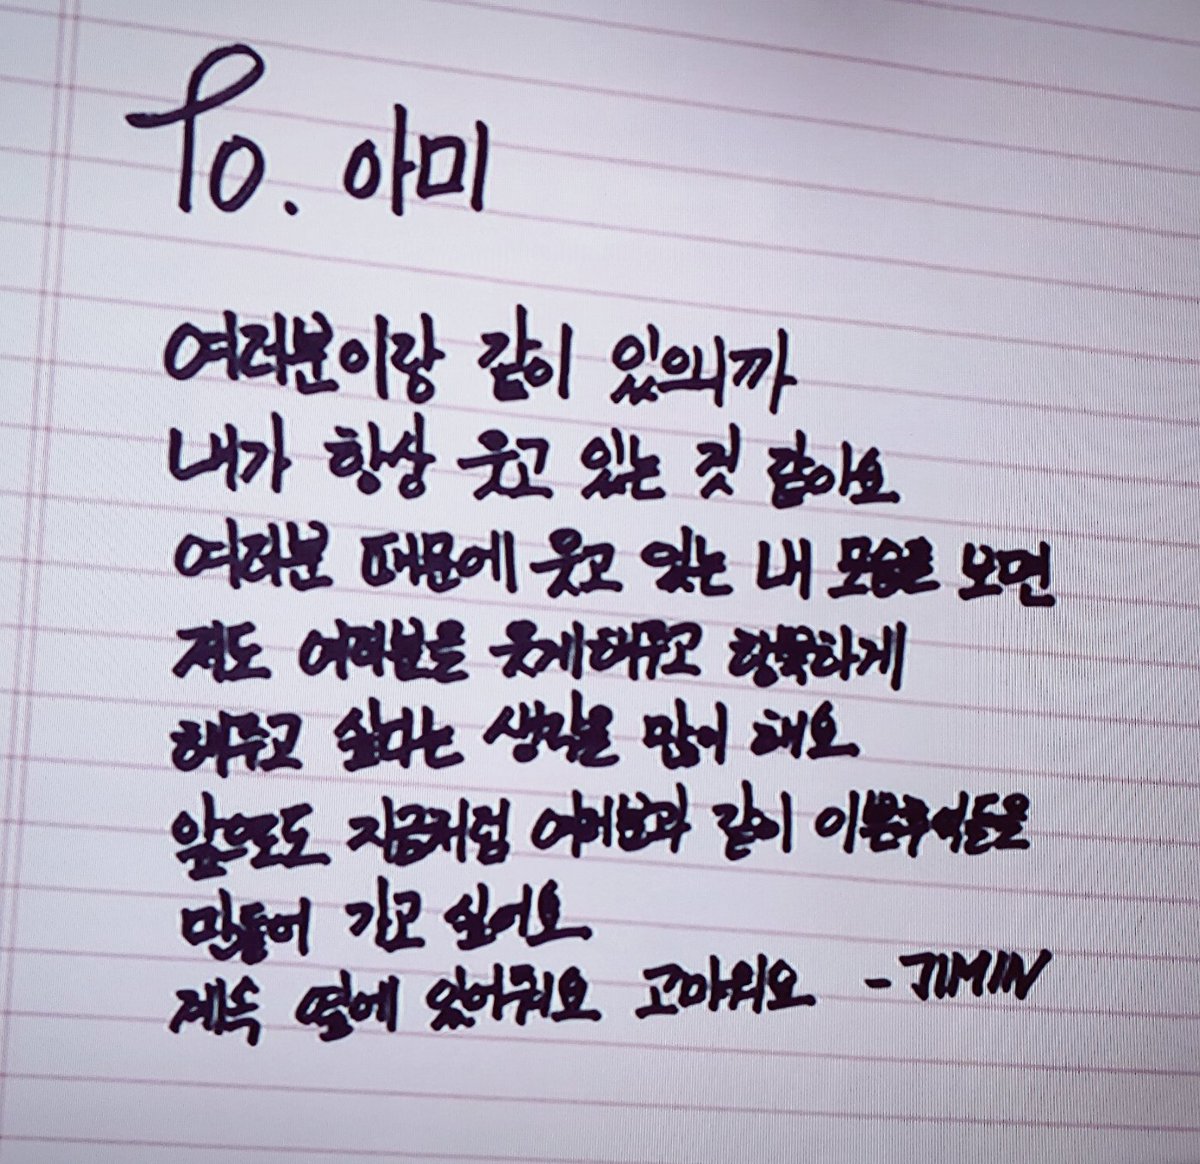 To. 아미
여러분이랑 같이 있으니까
내가 항상 웃고 있는 것 같아요
여러분 때문에 웃고 있는 내 모습을 보면
저도 여러분을 웃게해주고 행복하게
해주고 싶다는 생각을 많이 해요
앞으로도 지금처럼 여러분과 같이 이쁜추억들을
만들어 가고 싶어요
계속 옆에 있어줘요 고마워요 - JIMIN